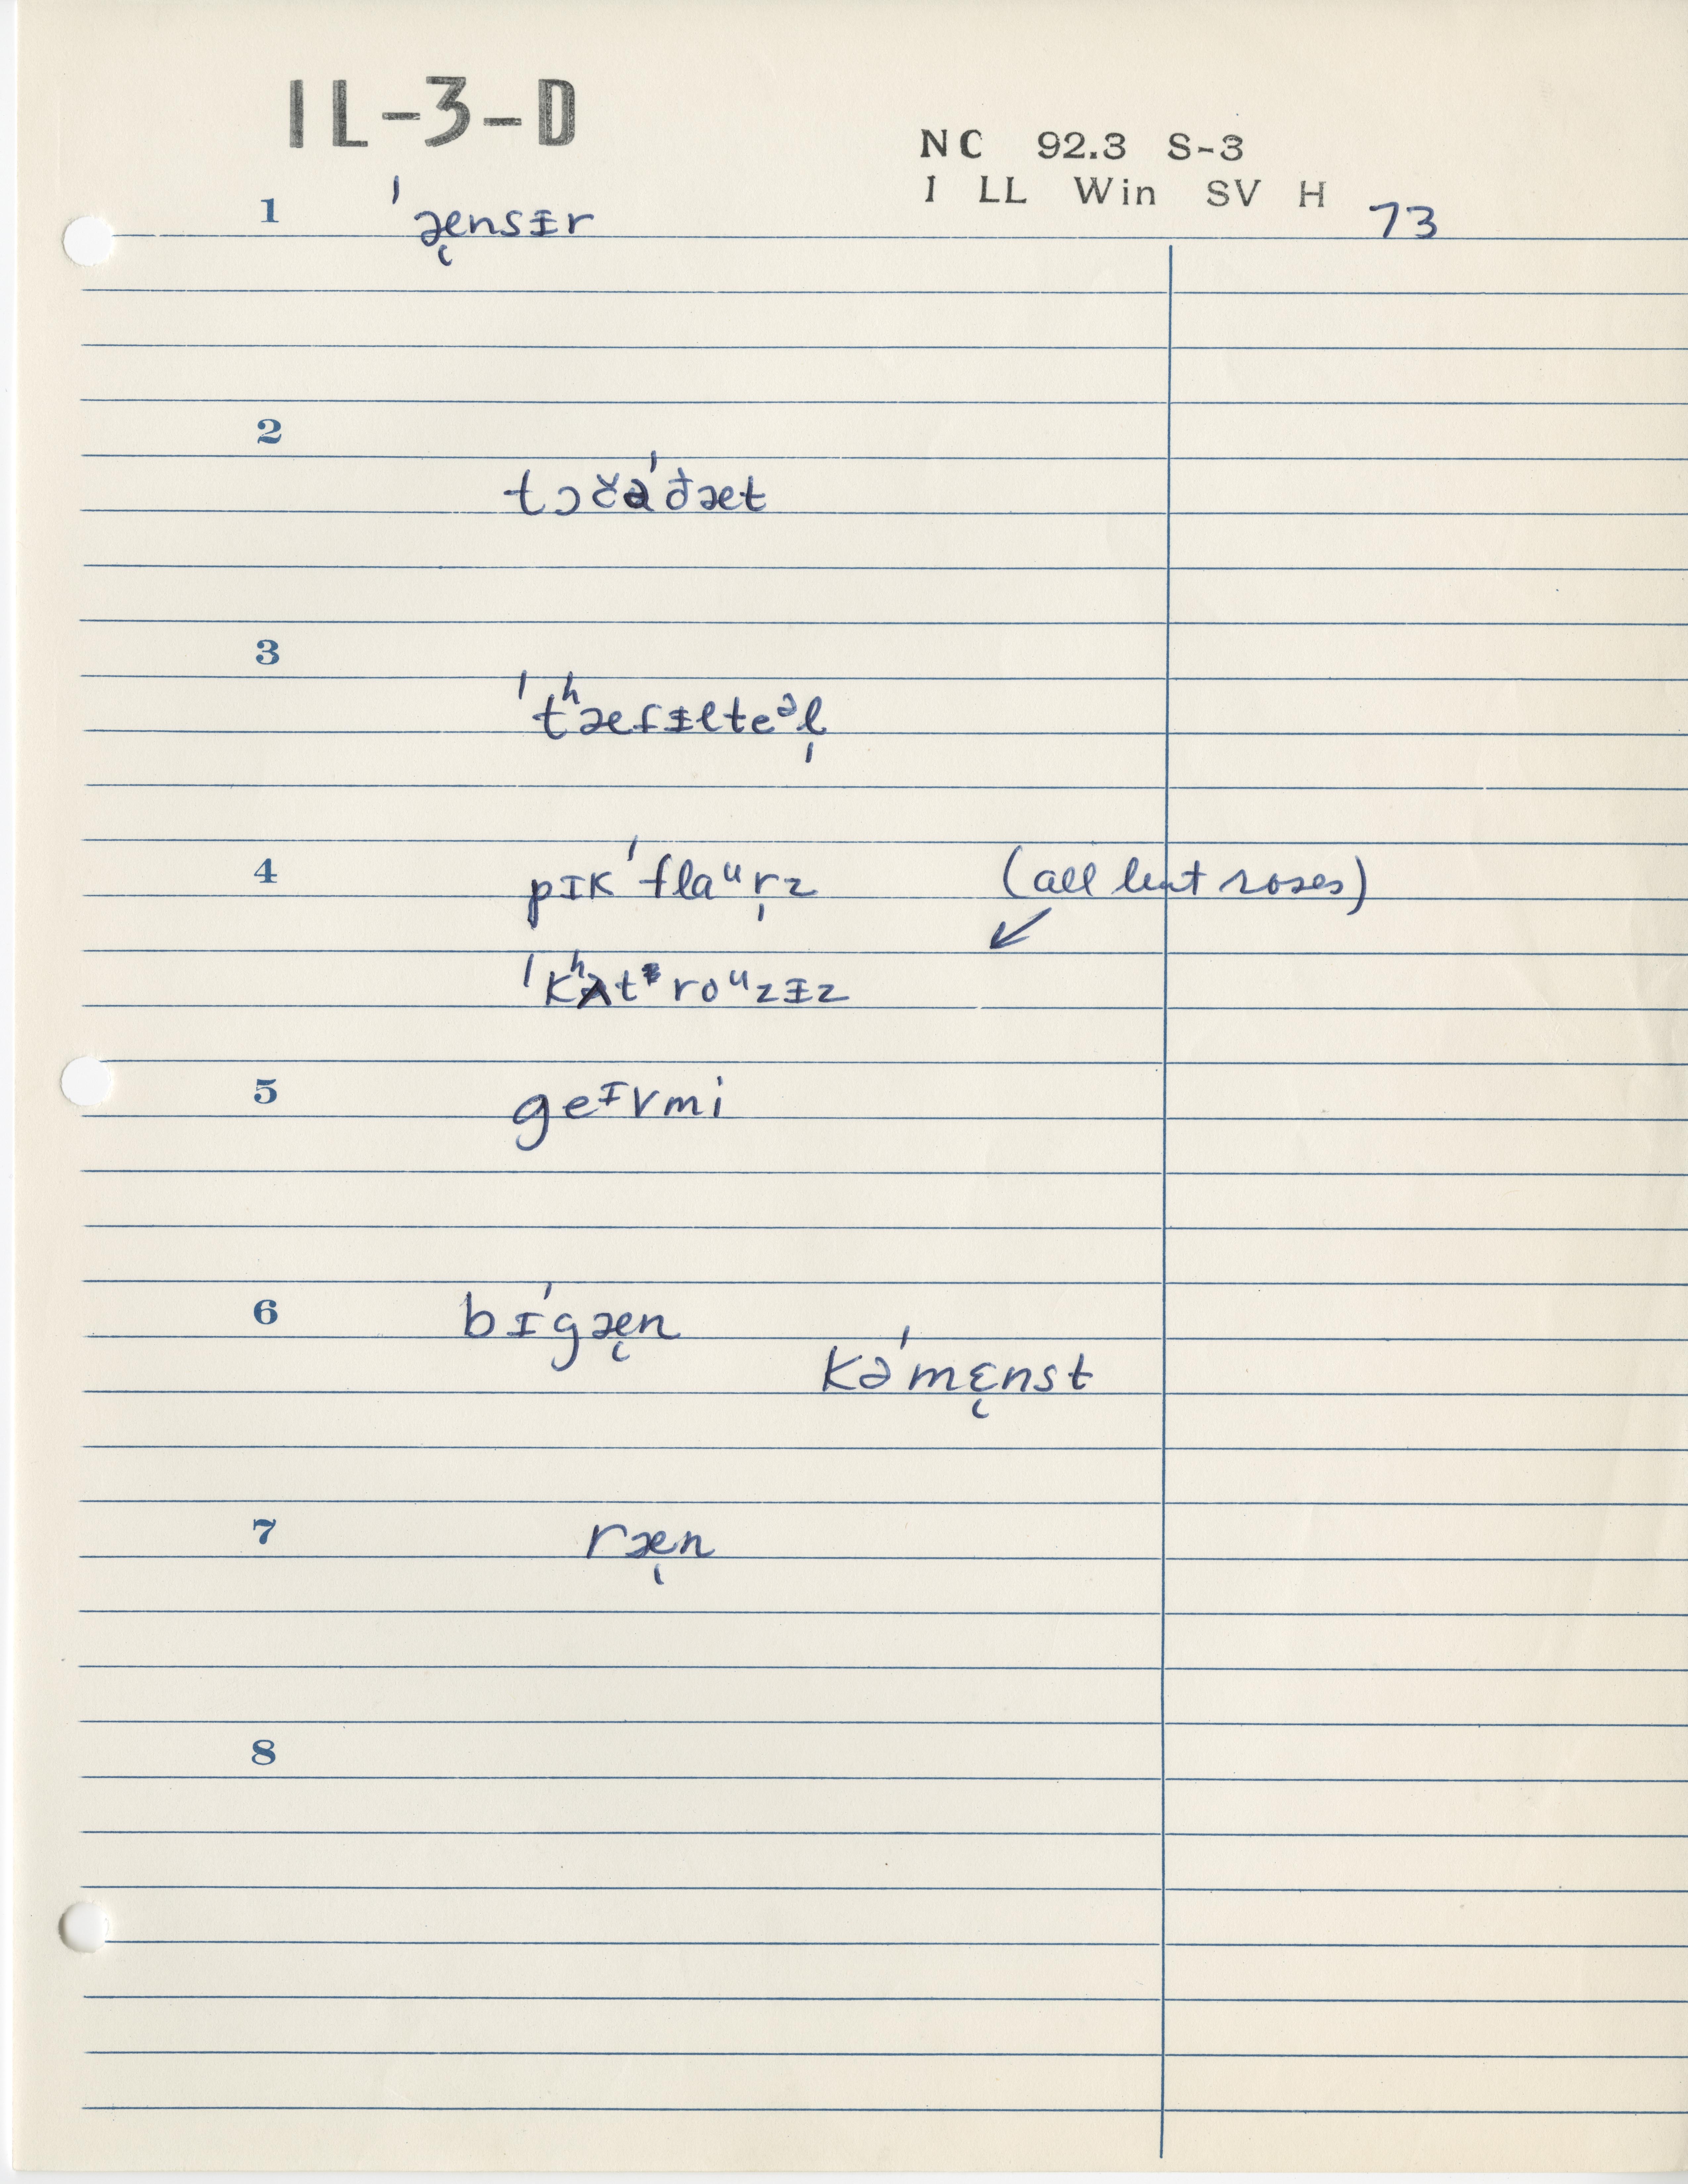 IL-3-D
NC 92.3 S-3
I LL Win SV H 73
1 ˈæ̨nsɪ̵r
2 tɔčəˈðæt
3 ˈtʰæfɪ̵lteᵊl̩
4 pɪkˈflaᵘr̩z (all but roses)
↙
ˈkʰʌtroᵘzɪ̵z
5 geᶦvmi
6 bɪˈgæ̨n
kəˈmɛ̨nst
7 ræ̨n
8